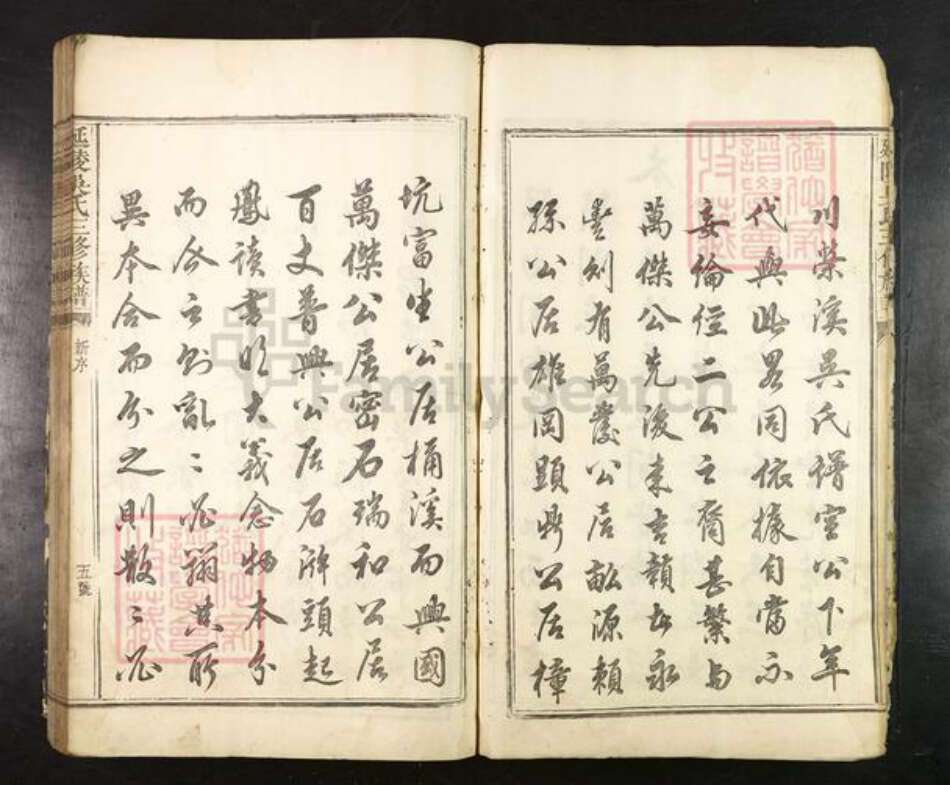 川榮溪吳氏譜宣公下年
代與此畧同依據自當不
妄倫位二公之裔甚繁與
萬傑公先後来吉贛永
豊則有萬發公居畝源賴
孫公居雄岡顕鼎公居樟
坑富生公居桶溪而興國
萬傑公居密石瑞和公居
百丈普興公居石漈頭起
鳳讀書明大義念物本分
而合之則亂亂必翔其所
異本合而分之則散散必
延陵吳氏三修族譜
新序
五號
FamilySearch